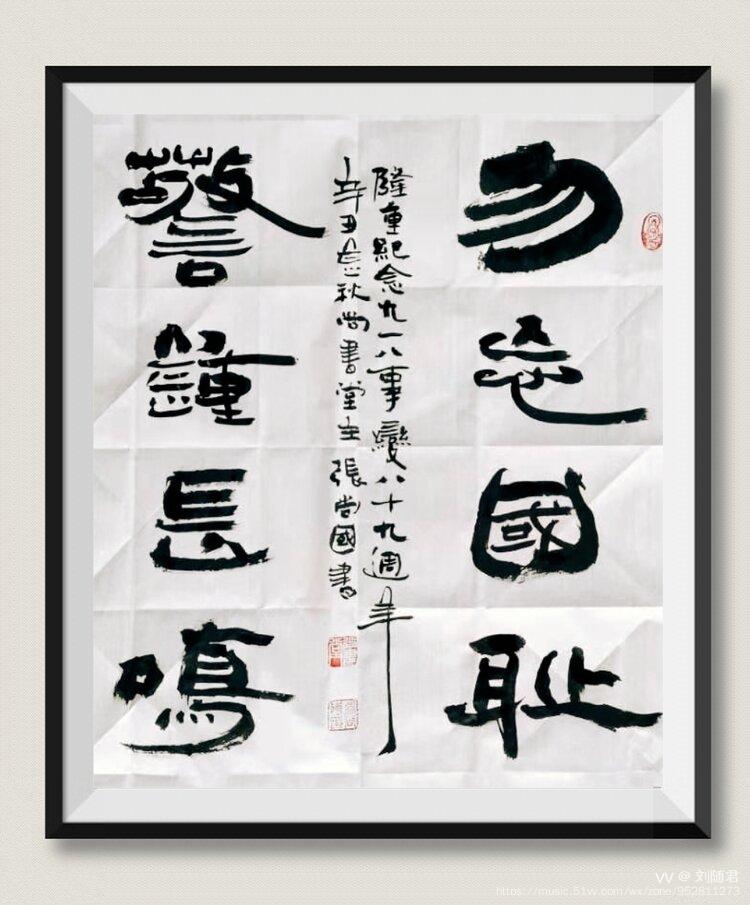 勿忘國耻
隆重紀念九一八事變八十九週年
辛丑秋尚書堂主張尚國書
警鍾長鳴
VV @ 刘随君
https://music.51vv.com/wx/zone/952811273